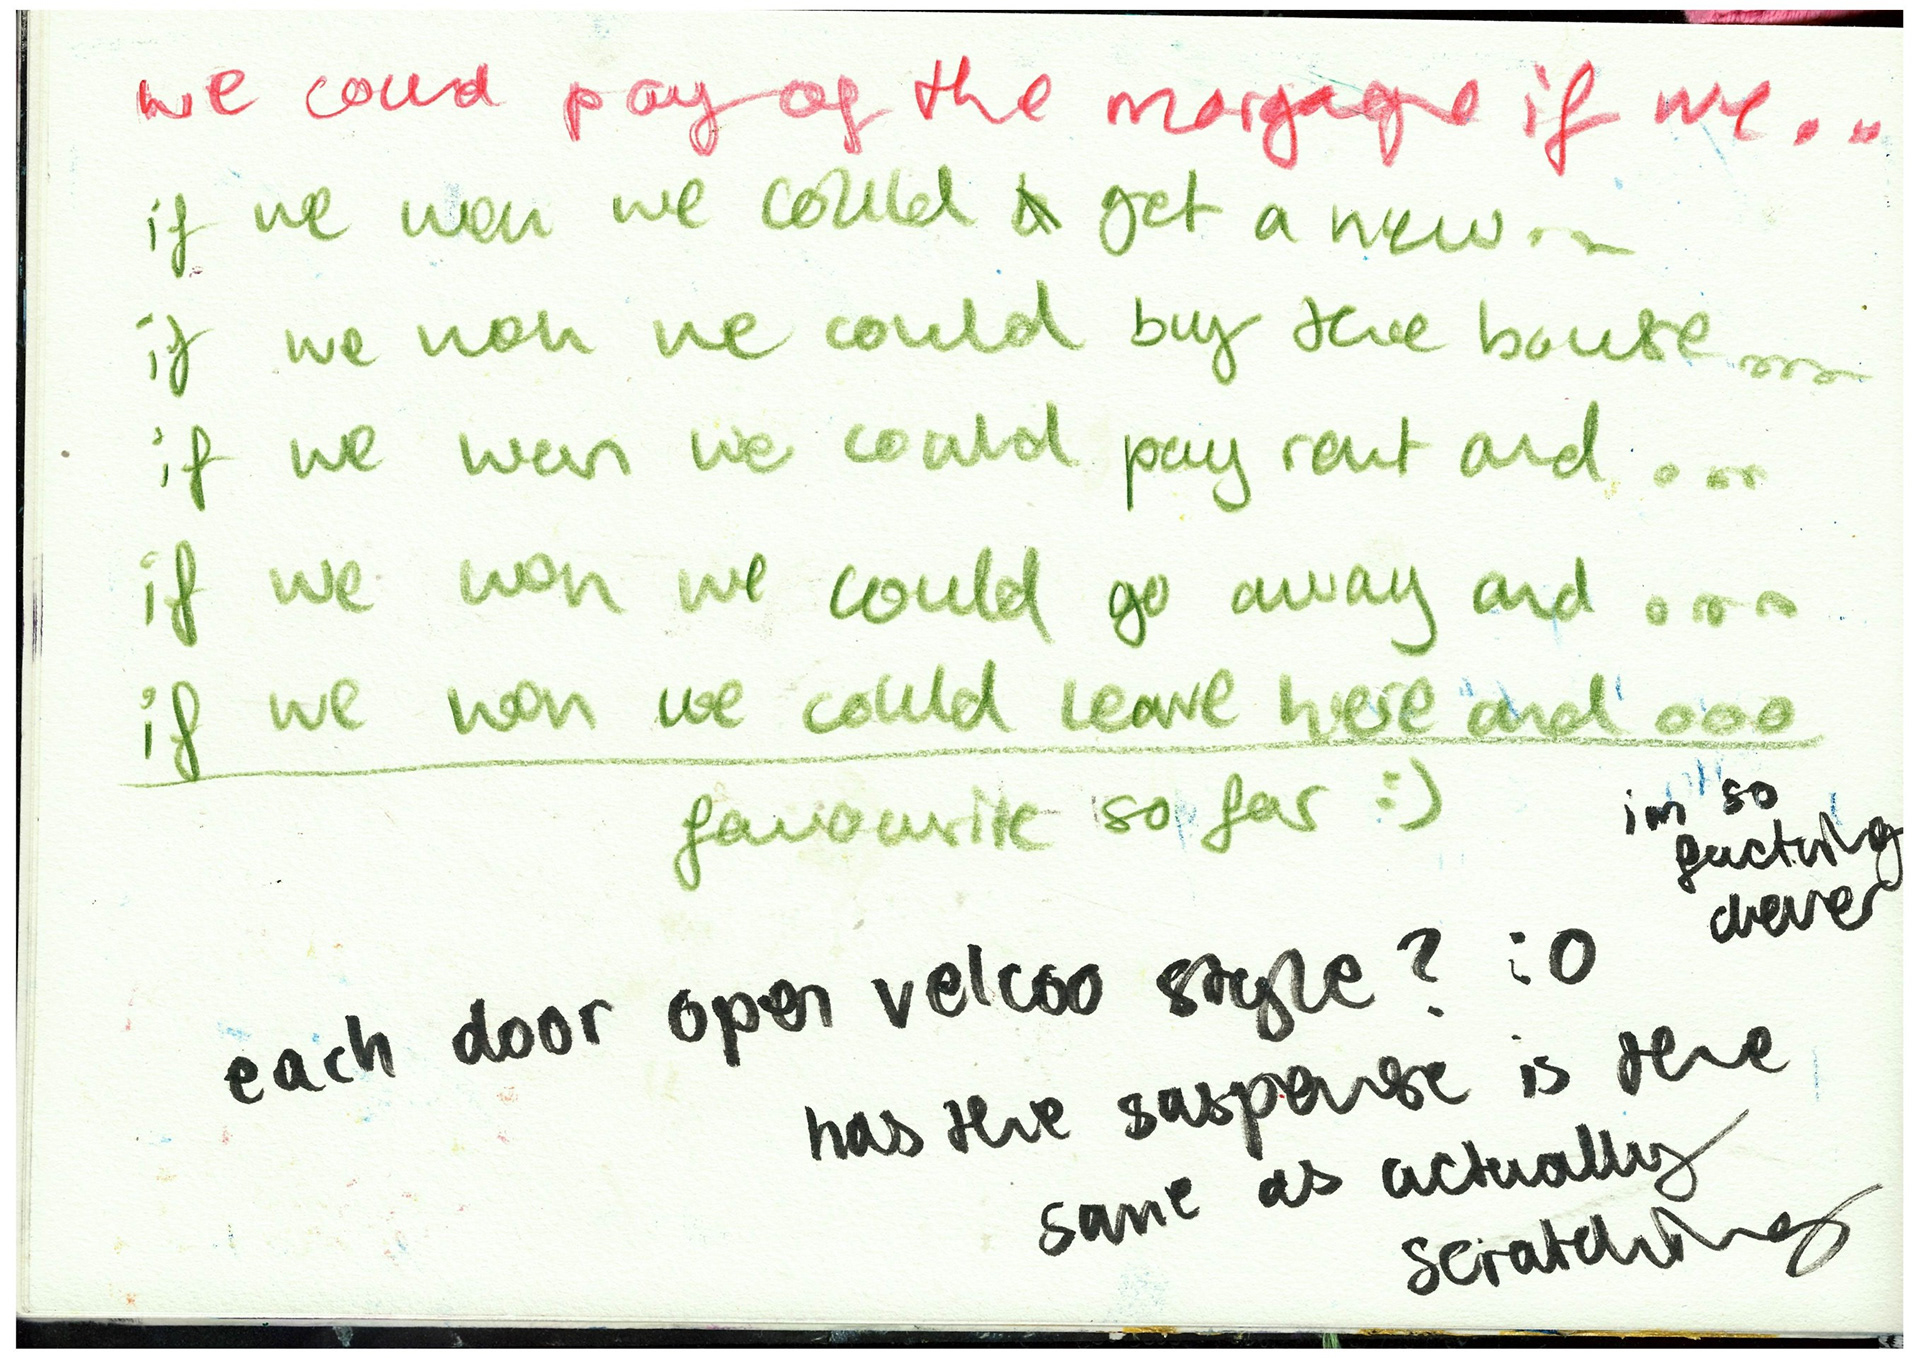 we coud pay of the morgage if we...
if we won we could get a new...
if we won we could buy the house....
if we won we could pay rent and ...
if we won we could go away and ....
if we won we could leave here and ...
favourite so far :)
im so
fuctwing
clever
each door open velcoo style? :O
has the suspense is the
same as actually
scratching